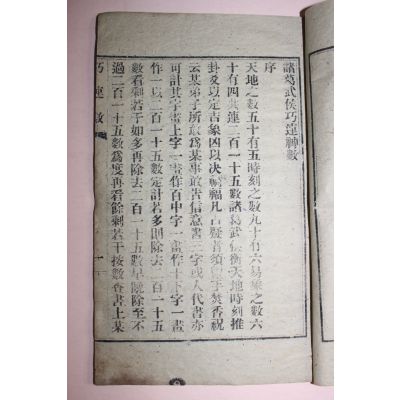 諸葛武侯巧連神數
序
天地之數五十有五時刻之數九十有六易象之數六
十有四共連二百一十五數諸葛武侯衡天地時刻推
卦爻以定吉象凶以決禍福凡占疑者須淨手焚香祝
云某弟子所敢爲某事敢告信意書三字或人代書亦
可計其字畫上字一畫作百中字一畫作十下字一畫
作一以二百一十五數定計若多則除去二百一十五
數看剩若干如多再除去二百一十五數另餘除至不
過二百一十五數爲度再看餘剩若干按數查書上某
巧連數
一